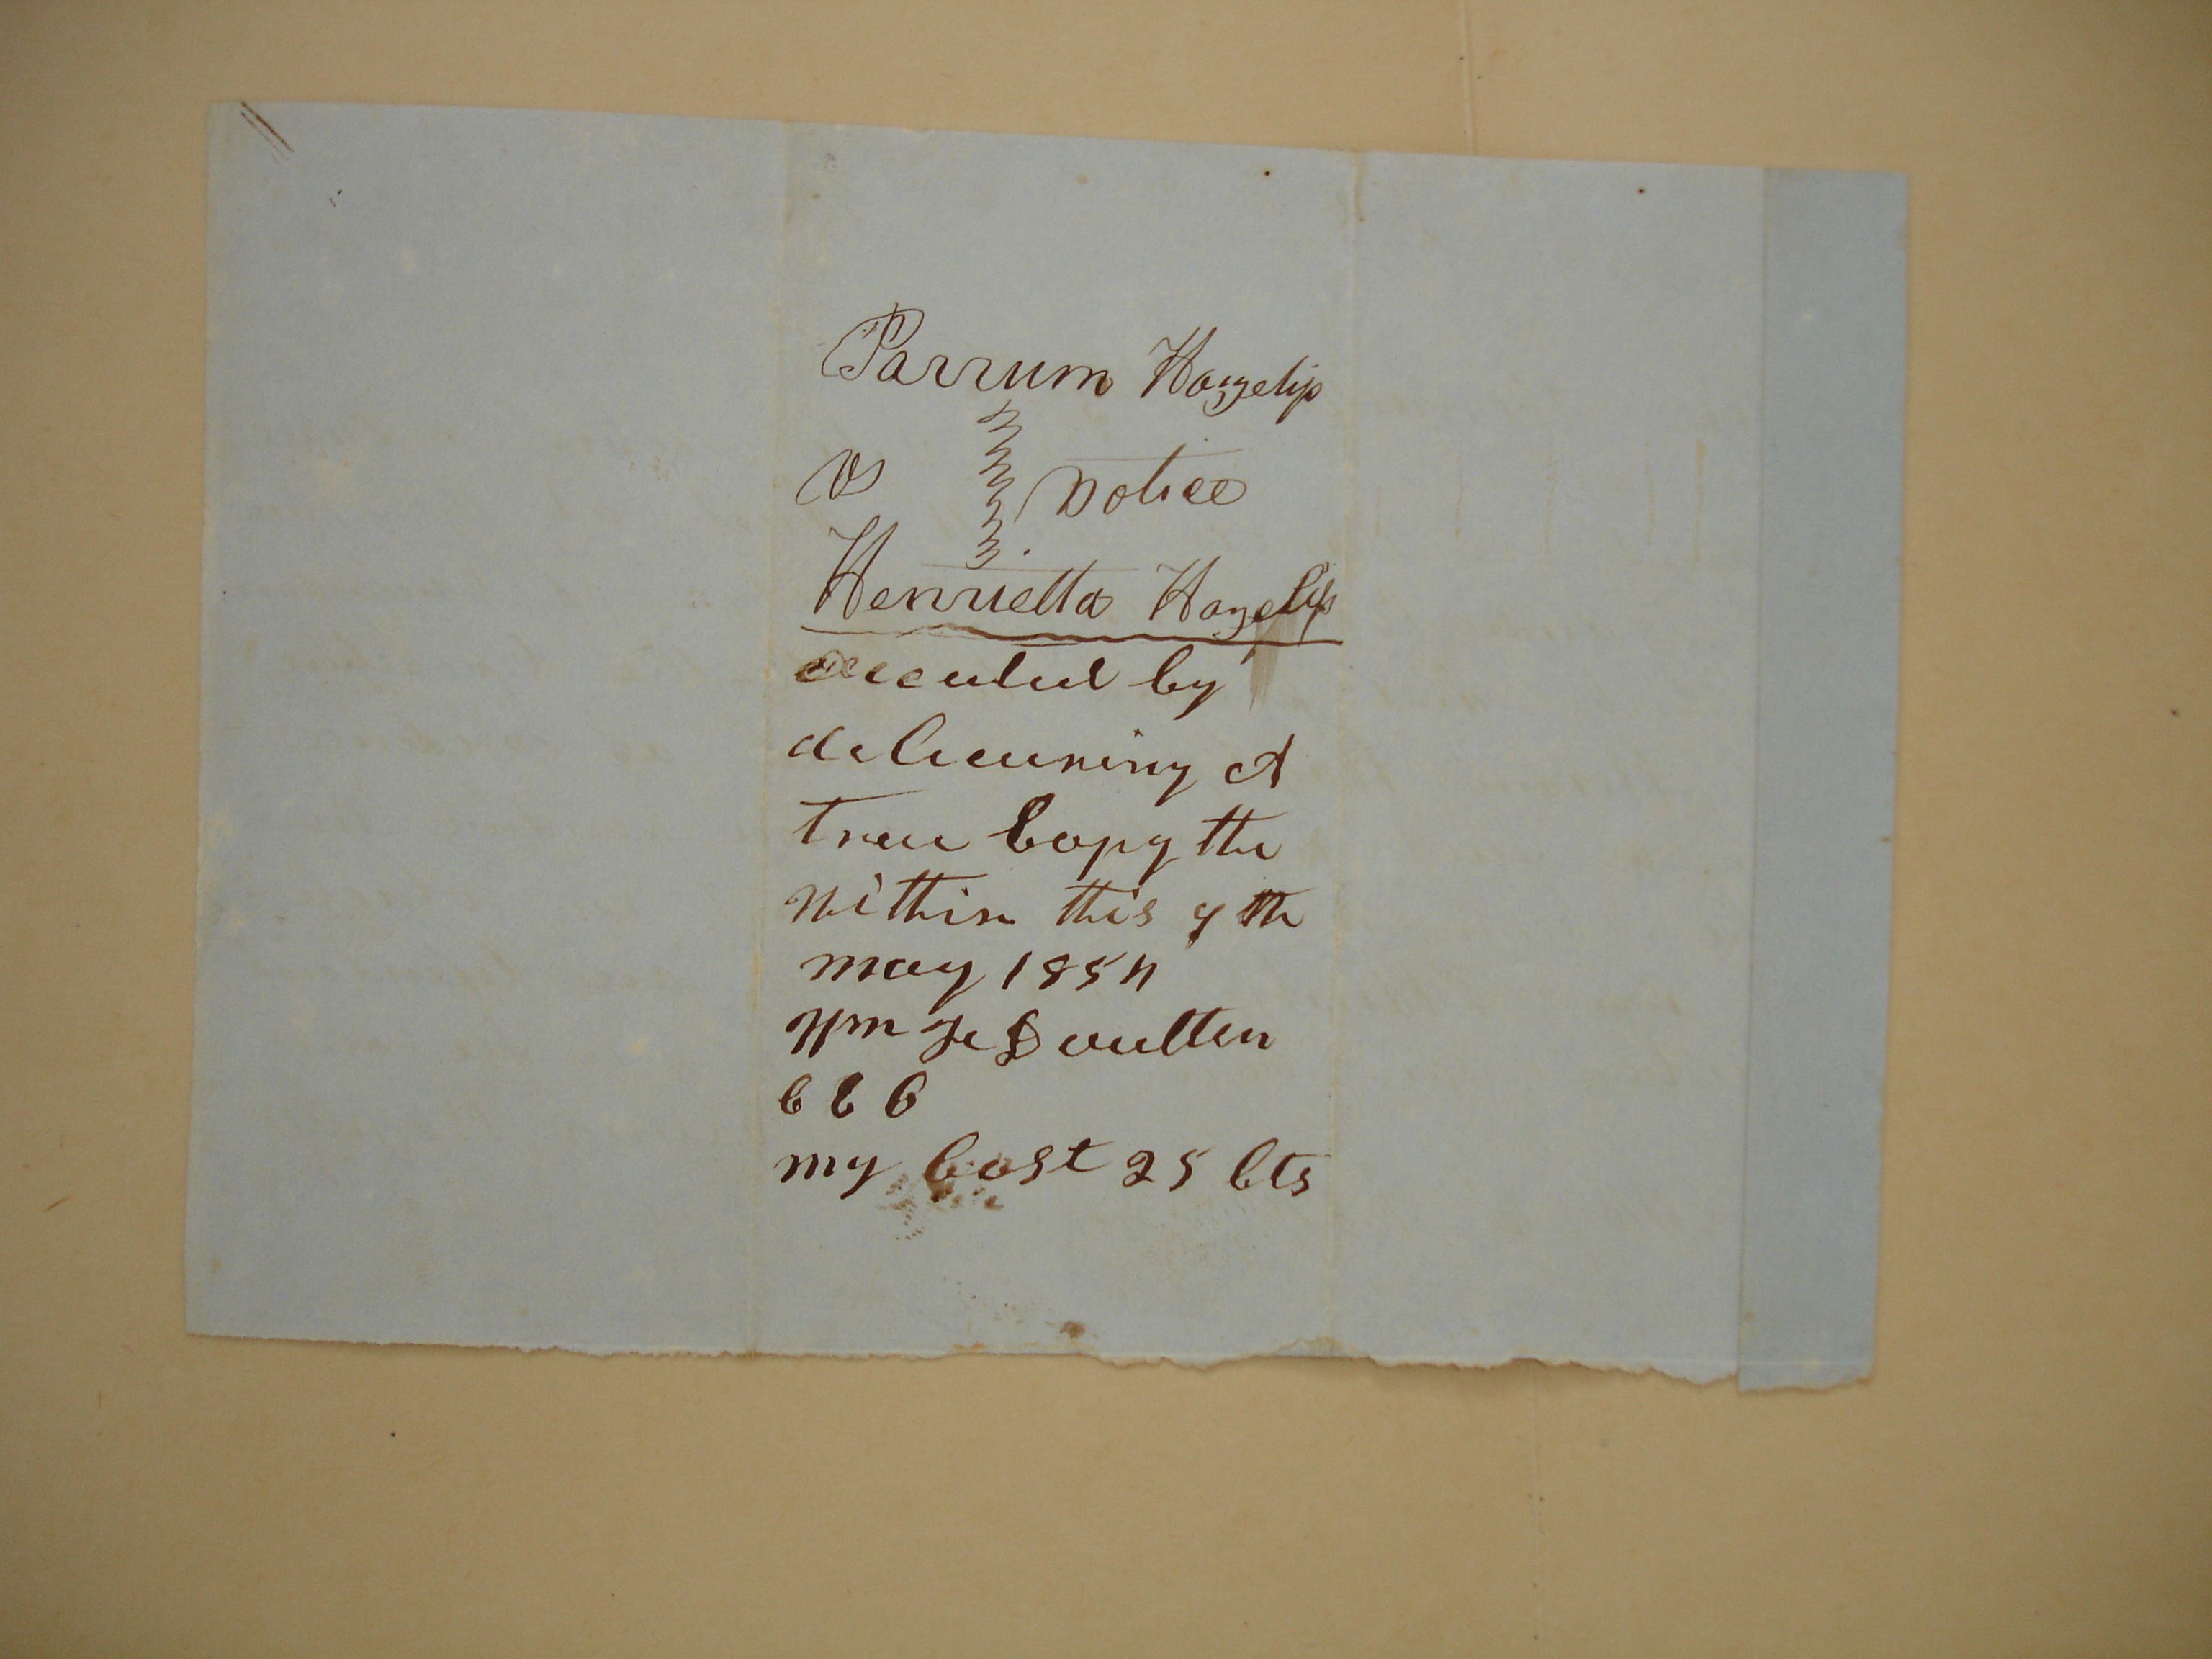 Parrum Hazzelip
vs } Notice
Henrietta Hazelip
executed by
delieuring A
true Copy the
within this 9th
may 1854
Wm
C C C
my Cost 25 Cts